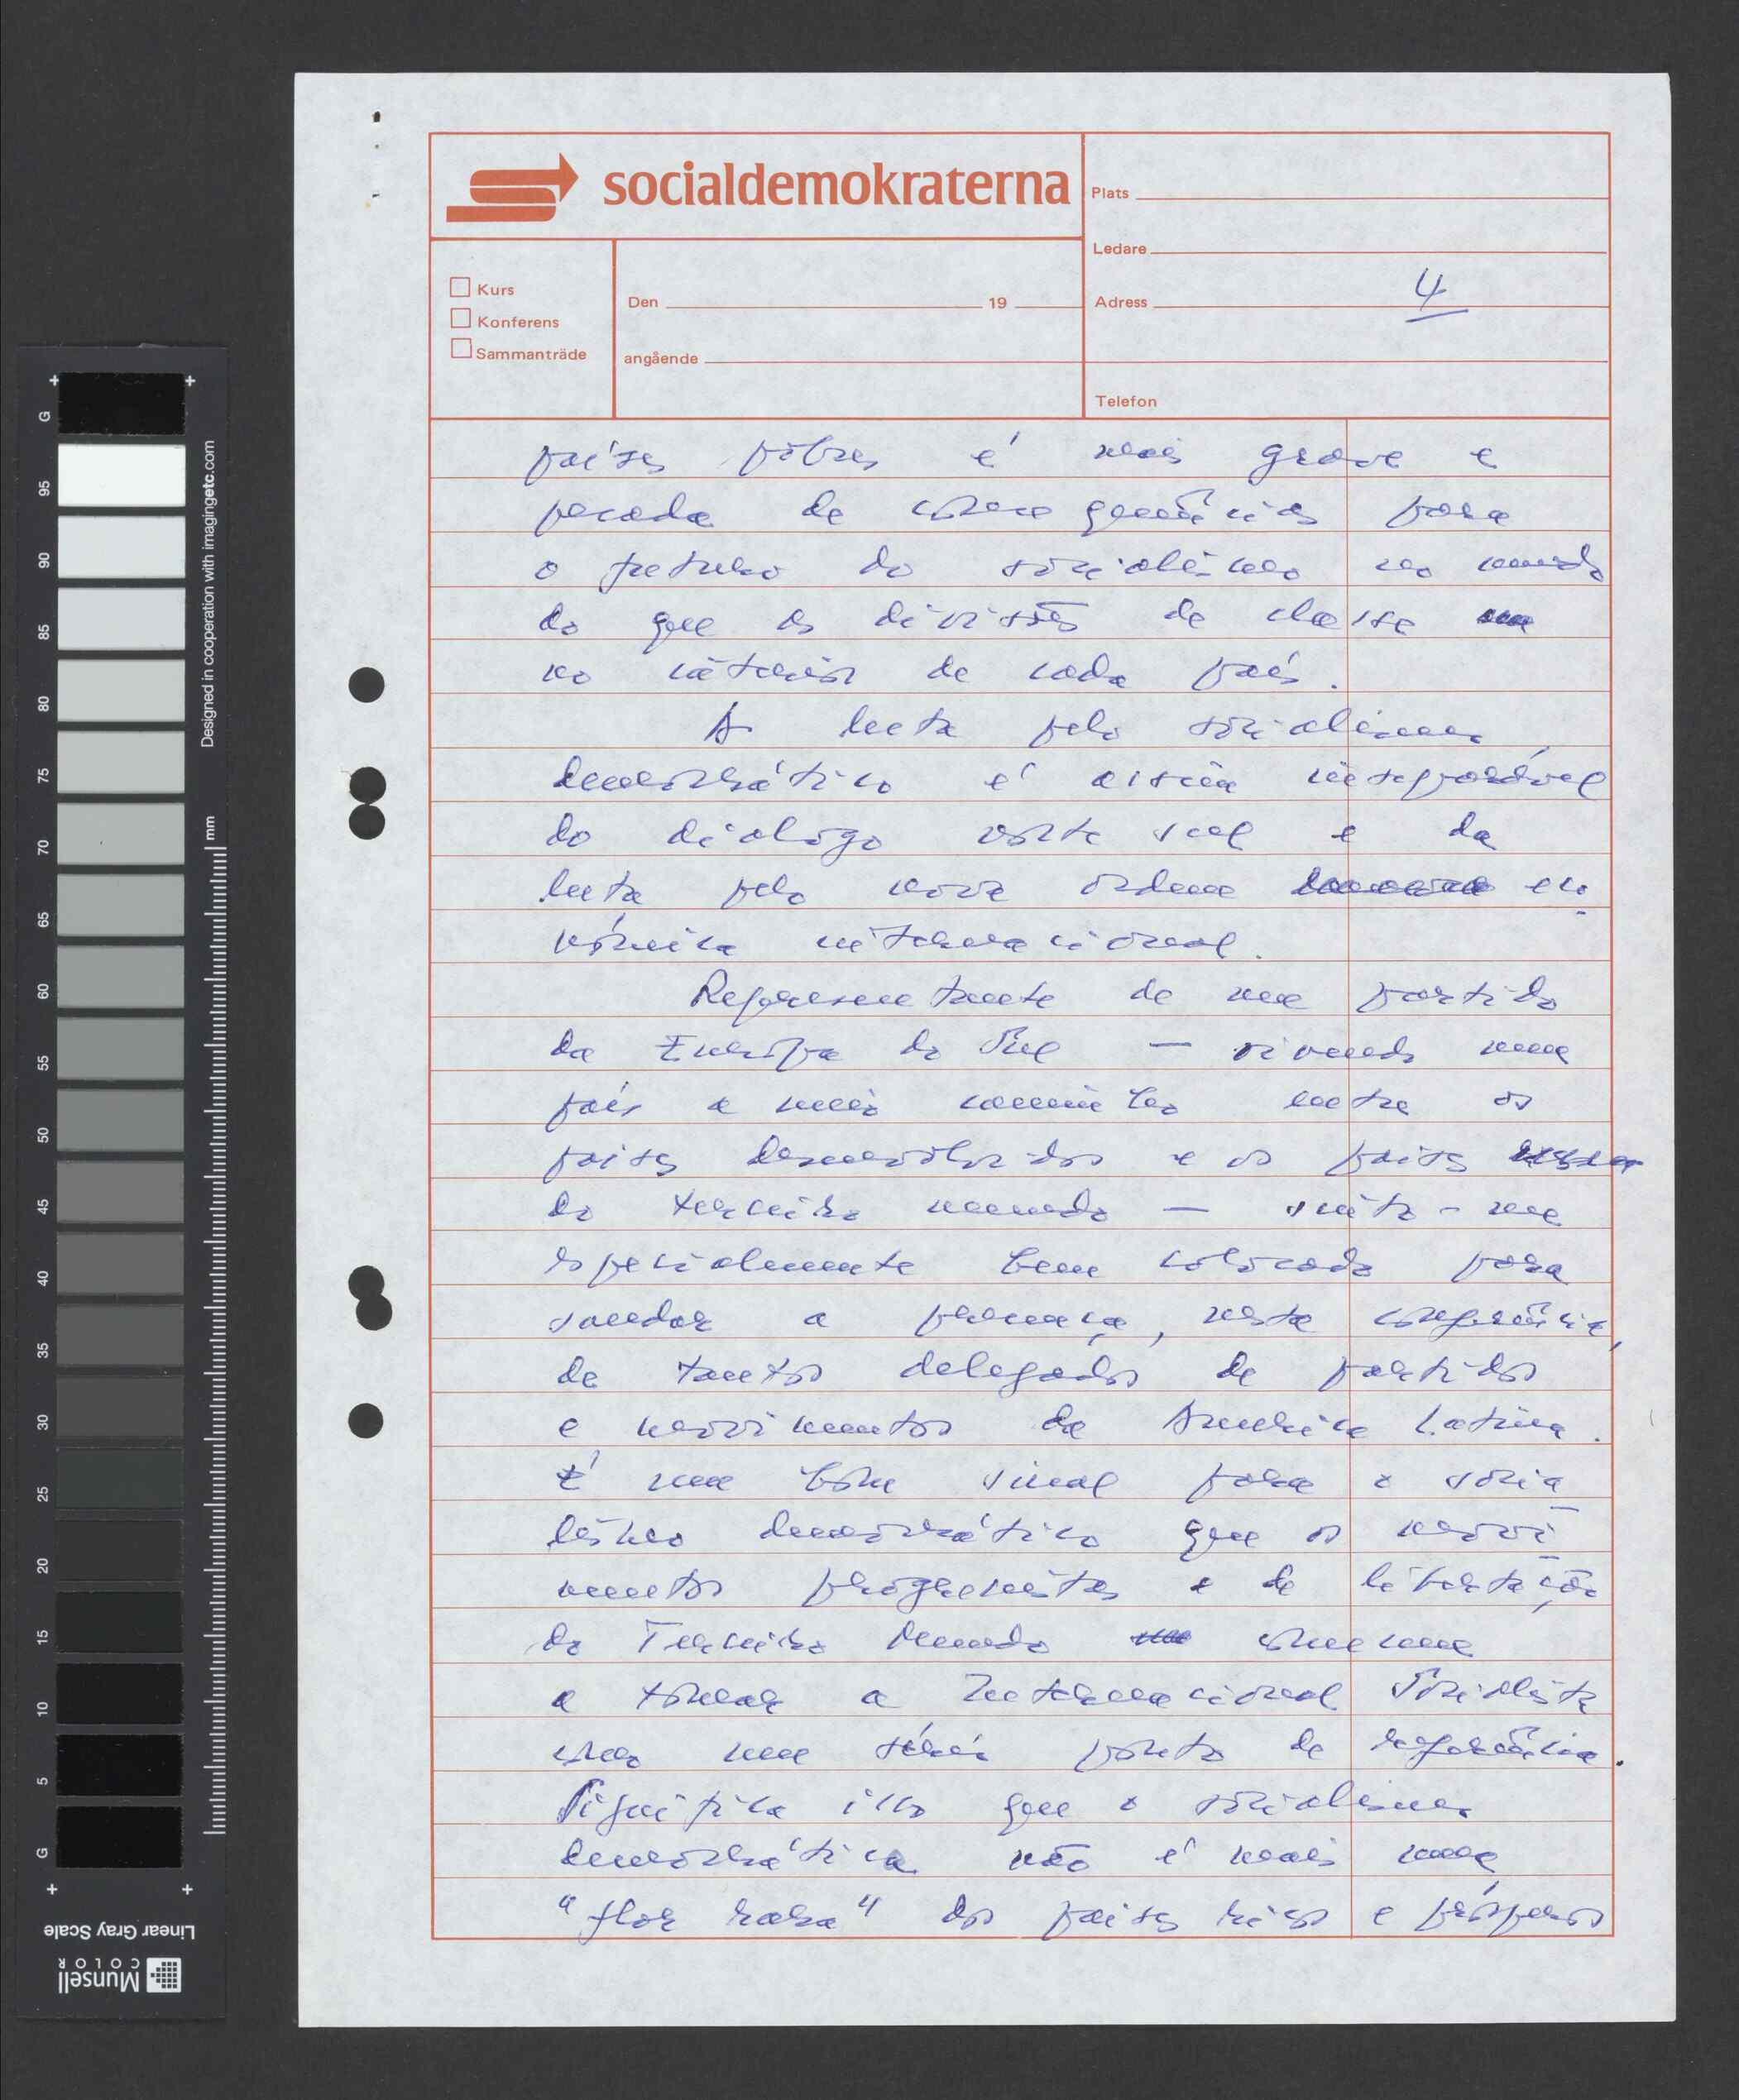 socialdemokraterna
Plats
Ledare
Kurs
Konferens
Sammanträde
Den 19
angående
Adress 4
Telefon
países pobres é mais grave e
pesada de consequências para
o futuro do socialismo no mundo
do que as divisões de classe
no interior de cada país.
A luta pelo socialismo
democrático é assim inseparável
do diálogo norte sul e da
luta pela nova ordem eco
nómica internacional.
Representante de um partido
da Europa do Sul — vivendo num
país a meio caminho entre os
países desenvolvidos e os países
do terceiro mundo — sinto-me
especialmente bem colocado para
saudar a presença, nesta conferência,
de tantos delegados de partidos
e movimentos da América Latina.
É um bom sinal para o socia
lismo democrático que os movi
mentos progressistas e de libertação
do Terceiro Mundo comecem
a tomar a Internacional Socialista
como um sério ponto de referência.
Significa isso que o socialismo
democrática não é mais uma
"flor rara" dos países ricos e prósperos
Designed in cooperation with imagingetc.com
mm
G 95 90 85 80 75 70 65 60 55 50 45 40 35 30 25 20 15 10 5 G
Linear Gray Scale
Munsell
COLOR